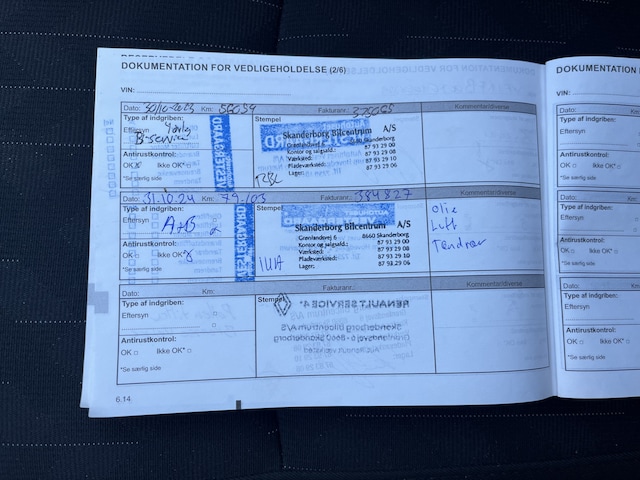 DOKUMENTATION FOR VEDLIGEHOLDELSE (2/6)
VIN:
Dato: 30/10-2023 Km: 56059 Fakturanr.: Kommentar/diverse
Type af indgriben: Stempel
Eftersyn
B-service
Skanderborg Bilcentrum A/S
Grønlandsvej 6 8660 Skanderborg
Kontor og salgsafd.: 87 93 29 00
Værksted: 87 93 29 08
Pladeværksted: 87 93 29 10
Lager: 87 93 29 06
Antirustkontrol:
OK Ikke OK*
*Se særlig side
Dato: 31.10.24 Km: 79.103 Fakturanr.: 384827 Kommentar/diverse
Type af indgriben: Stempel
Eftersyn A+B
Skanderborg Bilcentrum A/S
Grønlandsvej 6 8660 Skanderborg
Værksted: 87 93 29 00
87 93 29 08
Pladeværksted: 87 93 29 10
Lager: 87 93 29 06
Olie
Luft
Tændrør
Antirustkontrol:
OK Ikke OK*
*Se særlig side
Dato: Km: Fakturanr.: Kommentar/diverse
Type af indgriben: Stempel
Eftersyn
Antirustkontrol:
OK Ikke OK*
*Se særlig side
6.14
DOKUMENTATION
VIN:
Dato:
Type af indgriben:
Eftersyn
Antirustkontrol:
OK Ikke OK*
*Se særlig side
Type af indgriben:
Eftersyn
Antirustkontrol:
OK Ikke OK*
*Se særlig side
Dato:
Type af indgriben:
Eftersyn
Antirustkontrol:
OK Ikke OK*
*Se særlig side